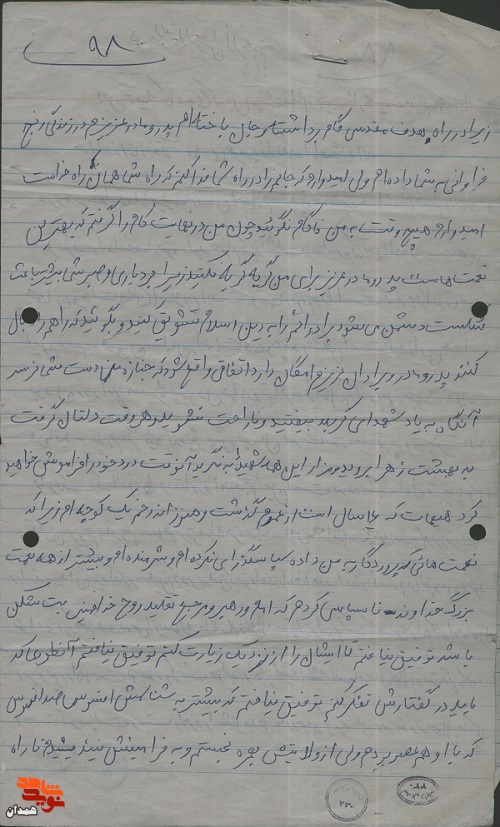 ۹۸
زیرا در راه هدف مقدسی گام برداشته و جان باخته‌ام پدر و مادر عزیزم در زندگی رنج
فراوانی به شما داده‌ام ولی امیدوارم که جانم را در راه شما فدا کنم که راه شما همان راه خداست
امیدوارم هیچ وقت به من ناکام نگوئید چون من در نهایت کام را گرفتم که بهترین
نعمت‌هاست پدر و مادر عزیز برای من گریه گریه نکنید زیرا بردباری و صبر شما بیشتر باعث
شکست دشمن می‌شود برادرانم را به دین اسلام تشویق کنید و بگوئید که راهم را دنبال
کنند پدر و مادر و برادران عزیزم امکان دارد اتفاقی واقع شود که جنازه من دست شما نرسد
آنگاه به یاد شهدای کربلا بیفتید و ناراحت نشوید و هر وقت دلتان گرفت
به بهشت زهرا بروید و مزار این همه شهید را بنگرید آنوقت درد خود را فراموش خواهید
کرد هیهات که سال است از عمرم گذشت و هنوز اندر خم یک کوچه‌ام زیرا که
نعمت‌هائی که پروردگار به من داده سپاسگزاری نکرده‌ام و شرمنده‌ام و بیشتر از همه نعمت
بزرگ خداوند ناسپاسی کردم که امام و رهبر و مرجع تقلید روح خدا خمینی بت شکن
باشد توفیق نیافتم تا ایشان را از نزدیک زیارت کنم توفیق نیافتم آنطوری که
باید در گفتارش تفکر کنم توفیق نیافتم که بیشتر به شناختش افسوس صد افسوس
که با او هم عصر بودم ولی از ولایتش بهره نجستم و به فرامینش نیندیشیدم تا راه
نوید شاهد
همدان